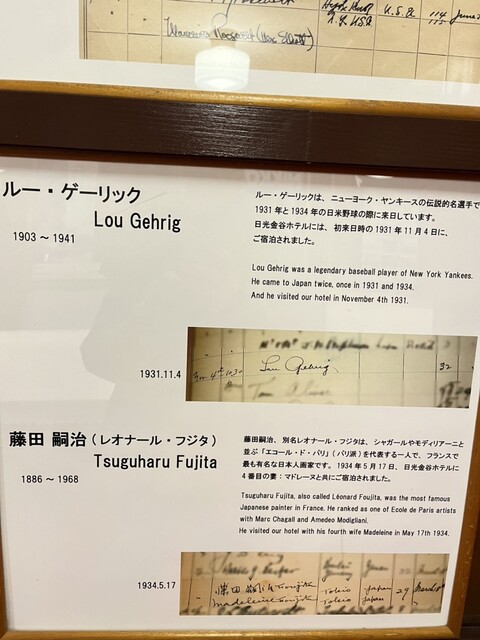 Hyde Park
N.Y. USA
U.S.A
114
115
June
ルー・ゲーリック
Lou Gehrig
1903 ～ 1941
ルー・ゲーリックは、ニューヨーク・ヤンキースの伝説的名選手で
1931年と1934年の日米野球の際に来日しています。
日光金谷ホテルには、初来日時の1931年11月4日に、
ご宿泊されました。
Lou Gehrig was a legendary baseball player of New York Yankees.
He came to Japan twice, once in 1931 and 1934.
And he visited our hotel in November 4th 1931.
1931.11.4
Nov 4th 1030
Lou Gehrig
32
藤田 嗣治（レオナール・フジタ）
Tsuguharu Fujita
1886 ～ 1968
藤田嗣治、別名レオナール・フジタは、シャガールやモディリアーニと
並ぶ「エコール・ド・パリ」（パリ派）を代表する一人で、フランスで
最も有名な日本人画家です。1934年5月17日、日光金谷ホテルに
4番目の妻：マドレーヌと共にご宿泊されました。
Tsuguharu Fujita, also called Léonard Foujita, was the most famous
Japanese painter in France. He ranked as one of Ecole de Paris artists
with Marc Chagall and Amedeo Modigliani.
He visited our hotel with his fourth wife Madeleine in May 17th 1934.
1934.5.17
藤田嗣治 Foujita Tokio Japan 29
Madeleine Foujita Tokio Japan